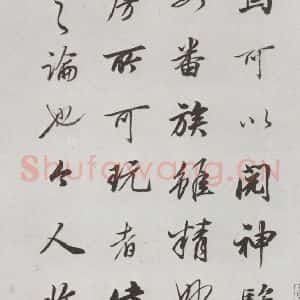 可以閱神駿
番族雖精妙
房所可玩者
論也今人
Shufawang.CN